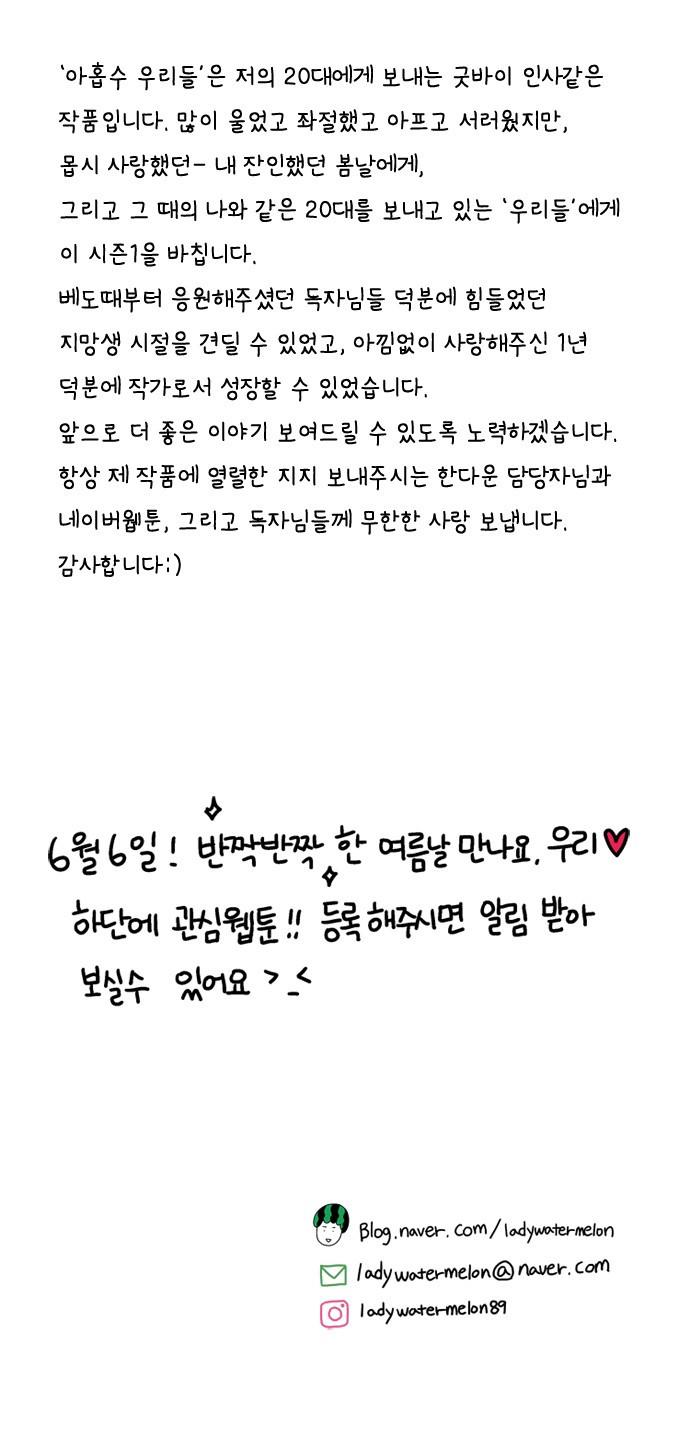 ‘아홉수 우리들’은 저의 20대에게 보내는 굿바이 인사같은
작품입니다. 많이 울었고 좌절했고 아프고 서러웠지만,
몹시 사랑했던- 내 잔인했던 봄날에게,
그리고 그 때의 나와 같은 20대를 보내고 있는 ‘우리들’에게
이 시즌1을 바칩니다.
베도때부터 응원해주셨던 독자님들 덕분에 힘들었던
지망생 시절을 견딜 수 있었고, 아낌없이 사랑해주신 1년
덕분에 작가로서 성장할 수 있었습니다.
앞으로 더 좋은 이야기 보여드릴 수 있도록 노력하겠습니다.
항상 제 작품에 열렬한 지지 보내주시는 한다운 담당자님과
네이버웹툰, 그리고 독자님들께 무한한 사랑 보냅니다.
감사합니다:)
6월 6일! 반짝반짝 한 여름날 만나요, 우리♥
하단에 관심웹툰!! 등록해주시면 알림 받아
보실수 있어요 >_<
Blog.naver.com/ladywatermelon
ladywatermelon@naver.com
ladywatermelon89